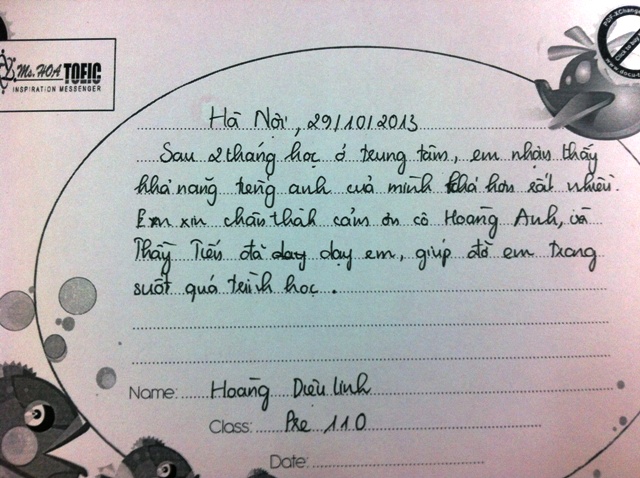 Ms. HOA TOEIC
INSPIRATION MESSENGER
PDF-XChange
Click to buy
www.docu-t
Hà Nội, 29/10/2013
Sau 2 tháng học ở trung tâm, em nhận thấy
khả năng tiếng anh của mình khá hơn rất nhiều.
Em xin chân thành cảm ơn cô Hoàng Anh, và
Thầy Tiến đã dạy dạy em, giúp đỡ em trong
suốt quá trình học.
Name: Hoàng Diệu Linh
Class: Pre 110
Date: